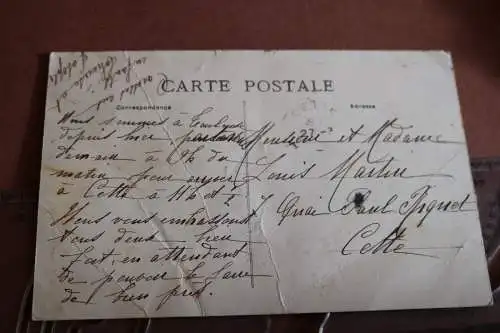 CARTE POSTALE
Correspondance
Adresse
Nous sommes à
depuis hier
demain à 9h du
matin pour
à Cette à 11h et
Nous vous embrassons
tous deux bien
fort, en attendant
de pouvoir le faire
de bien près.
Monsieur et Madame
Louis Martin
7 Quai Paul Riquet
Cette